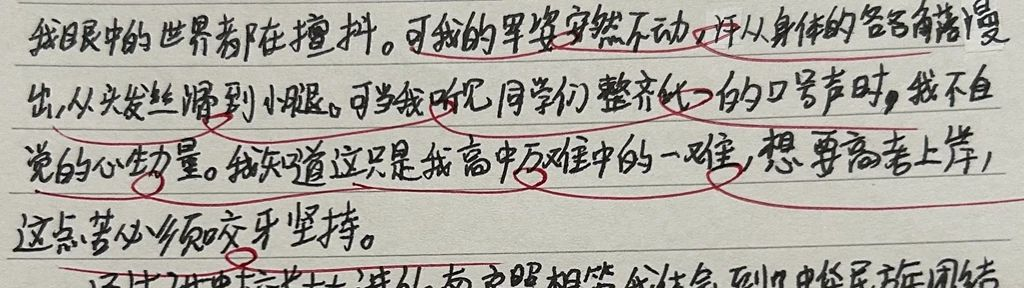 我眼中的世界都在擅抖。可我的军姿安然不动,汗从身体的各各角落漫
出,从头发丝滑到小腿。可当我听见同学们整齐化一的口号声时,我不自
觉的心生力量。我知道这只是我高中万难中的一难,想要高考上岸,
这点苦必须咬牙坚持。